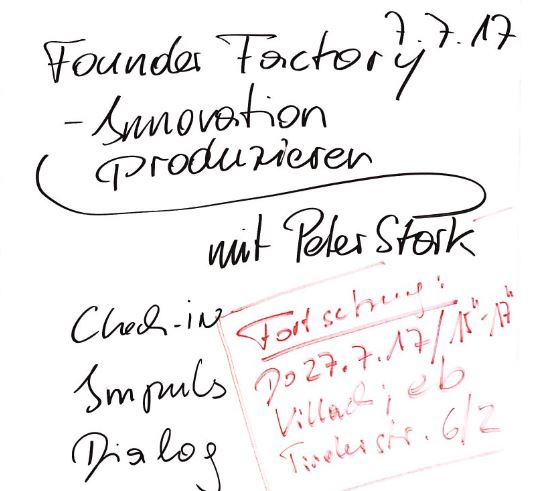 7.7.17
Founder Factory
- Innovation
produzieren
mit Peter Stark
Check-in
Impuls
Dialog
Fortsetzung:
Do 27.7.17/15"-17"
Villach; eb
6/2